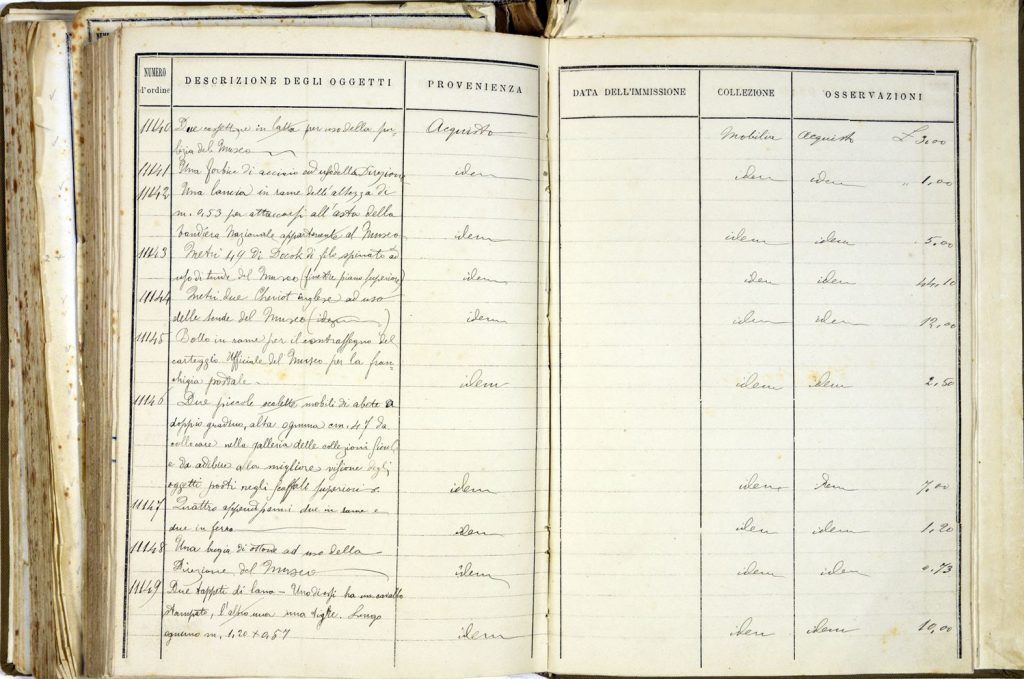 NUMERO d'ordine DESCRIZIONE DEGLI OGGETTI PROVENIENZA DATA DELL'IMMISSIONE COLLEZIONE OSSERVAZIONI
11140 Due cassettine in latta per uso della pu- Acquisto Mobilia Acquisto £ 3.00
lizia del Museo
11141 Una forbice di acciaio ad uso della Direzione idem idem idem " 1,00
11142 Una lancia in rame dell'altezza di
m. 0,53 per attaccarsi all'asta della
bandiera Nazionale appartenente al Museo idem idem idem 5.00
11143 Metri 49 di di filo spinato ad
uso di tende del Museo (finestre piano superiore) idem idem idem 44.10
11144 Metri due Cheviot inglese ad uso
delle tende del Museo (idem) idem idem idem 12,00
11145 Bollo in rame per il contrassegno del
carteggio Ufficiale del Museo per la fran-
chigia postale idem idem idem 2.50
11146 Due piccole scalette mobili di abete a
doppio gradino, alta ognuna cm. 47 da
collocare nella galleria delle collezioni
e da adibire a la migliore visione degli
oggetti posti negli scaffali superiori idem idem Idem 7,00
11147 Quattro appendipanni due in rame e
due in ferro idem idem idem 1,20
11148 Una bugia di ottone ad uso della
Direzione del Museo idem idem idem 0.73
11149 Due tappeti di lana – Uno di essi ha un cavallo
stampato, l'altro una tigre. Lungo
ognuno m. 1,20 x 0,57 idem idem idem 10,00